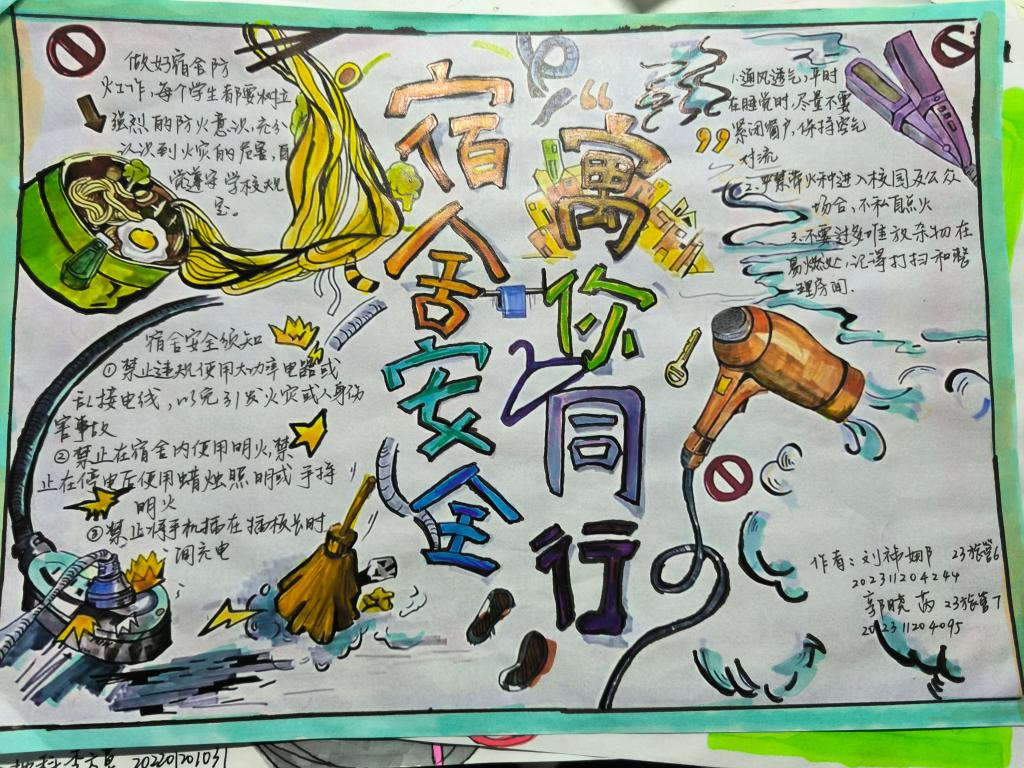 做好宿舍防
火工作，每个学生都要树立
强烈的防火意识，充分
认识到火灾的危害，自
觉遵守学校规
定。
宿舍安全
“寓”你同行
1.通风透气，平时
在睡觉时，尽量不要
紧闭窗户，保持空气
对流
2.严禁带火种进入校园及公众
场合，不私自点火
3.不要过多堆放杂物在
易燃处，记得打扫和整
理房间.
宿舍安全须知
①禁止违规使用大功率电器或
乱接电线，以免引发火灾或人身伤
害事故
②禁止在宿舍内使用明火，禁
止在停电后使用蜡烛照明或手持
明火
③禁止将手机插在插板长时
间充电
作者：刘神娜 23旅管6
202311204244
郭晓 23旅管7
202311204095
20220120103